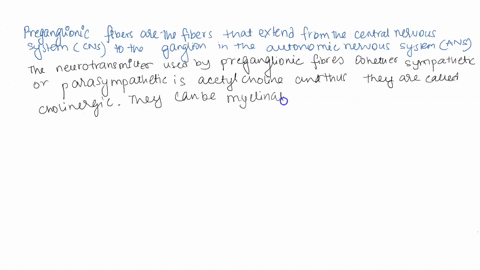 Preganglionic fibers are the fibers that extend from the central nervous
system (CNS) to the ganglion in the autonomic nervous system (ANS)
The neurotransmitter used by preganglionic fibres whether sympathetic
or parasympathetic is acetyl choline and thus they are called
cholinergic. They can be myelinat